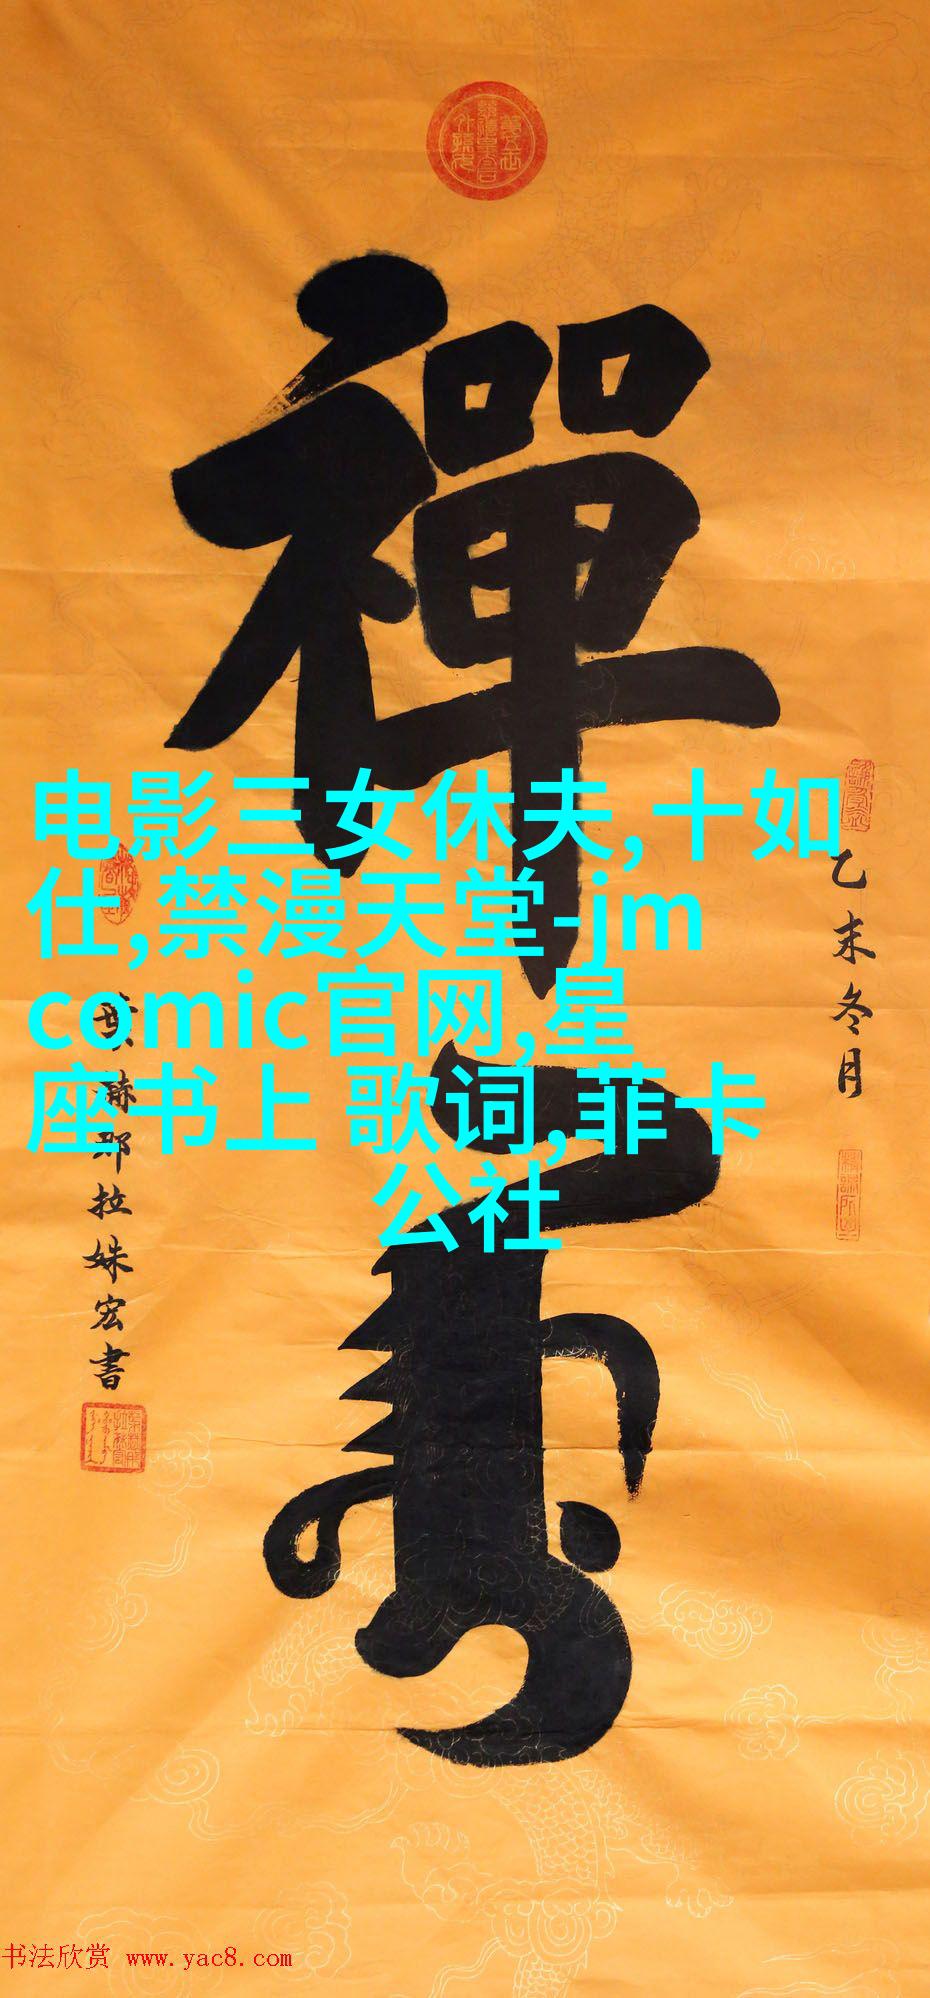 禪
乙未冬月
葉赫那拉姝宏書
电影三女休夫,十如
仕,禁漫天堂-jm
comic官网,星
座书上 歌词,菲卡
公社
书法欣赏 www.yac8.com